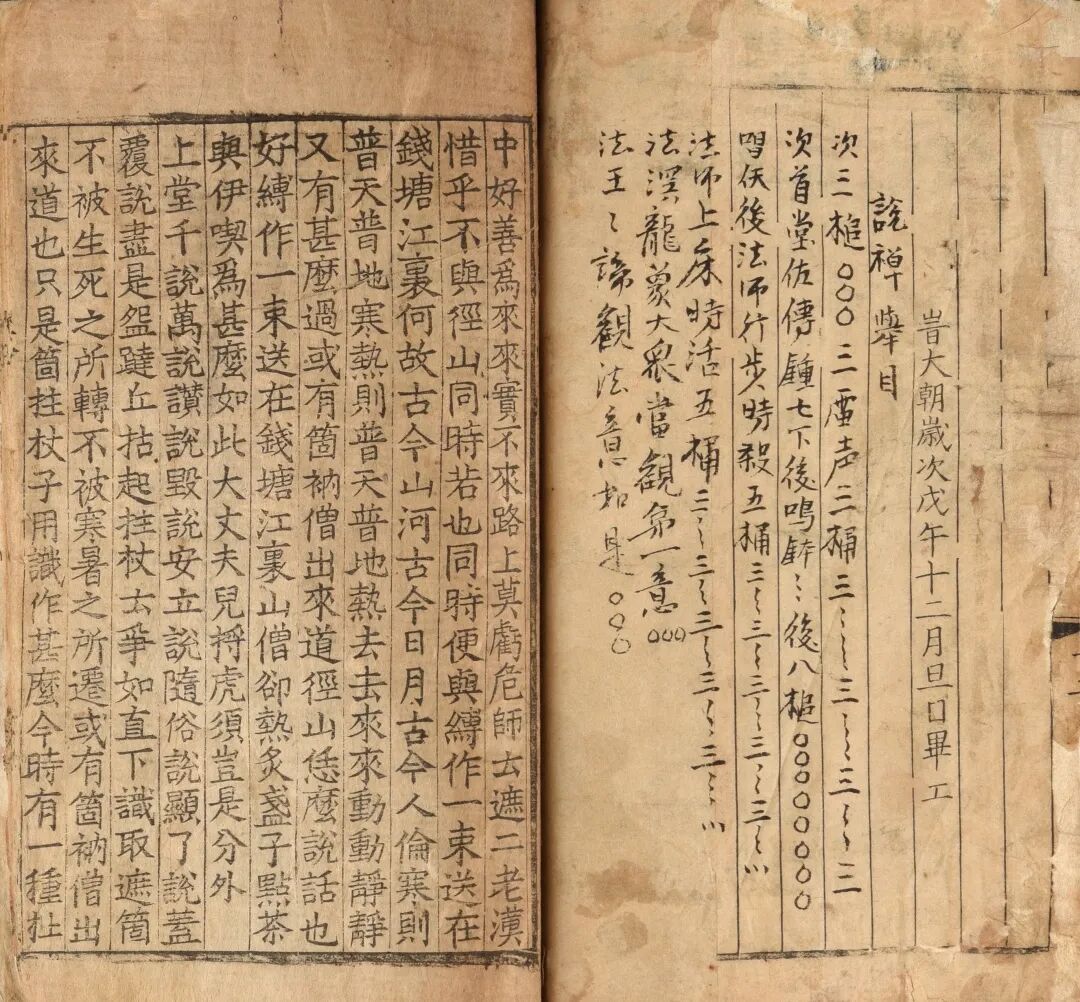 旹大朝歲次戊午十二月旦日畢工
說禅擧目
次三槌〇〇〇三雷声三桶三〻〻三〻〻三〻〻三
次首堂佐傳鍾七下後鳴鈸〻後八槌〇〇〇〇〇〇〇〇
唄佐後法师行步時殺五桶三〻〻三〻〻三〻〻三〻〻三〻〻
法师上床時活五桶三〻〻三〻〻三〻〻三〻〻三〻〻
法演龍象大衆當觀第一意〇〇〇
法王〻諦觀法意如是〇〇〇
中好善爲來來實不來路上莫虧危師云遮二老漢
惜乎不與徑山同時若也同時便與縛作一束送在
錢塘江裏何故古今山河古今日月古今人倫寒則
普天普地寒熱則普天普地熱去去來來動動靜靜
又有甚麽過或有箇衲僧出來道徑山恁麽說話也
好縛作一束送在錢塘江裏山僧卻熱炙盞子點茶
與伊喫爲甚麽如此大丈夫兒捋虎須豈是分外
上堂千說萬說讚說毀說安立說隨俗說顯了說蓋
覆說盡是盌躂丘拈起拄杖云爭如直下識取遮箇
不被生死之所轉不被寒暑之所遷或有箇衲僧出
來道也只是箇拄杖子用識作甚麽今時有一種扯